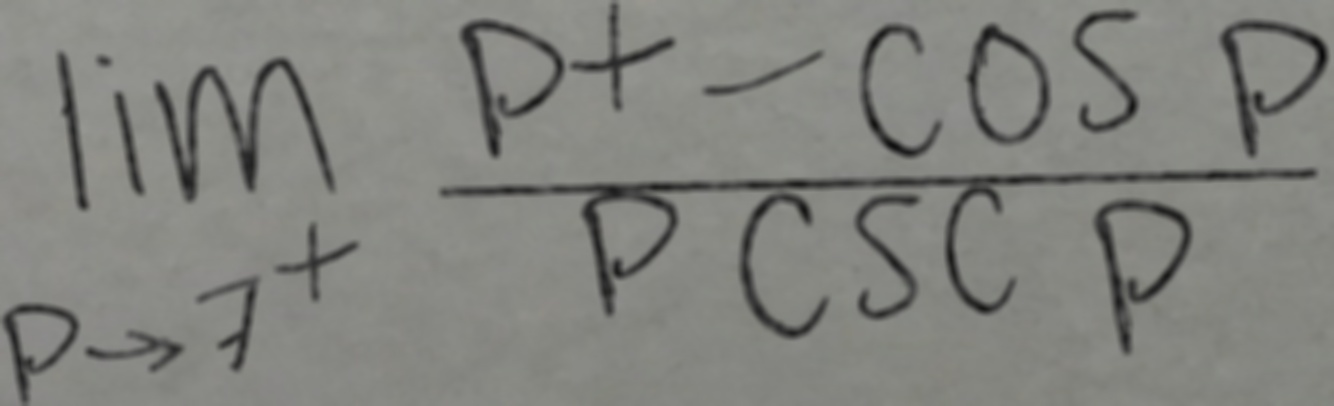 \lim_{p \to 7^+} \frac{p + - \cos p}{p \csc p}